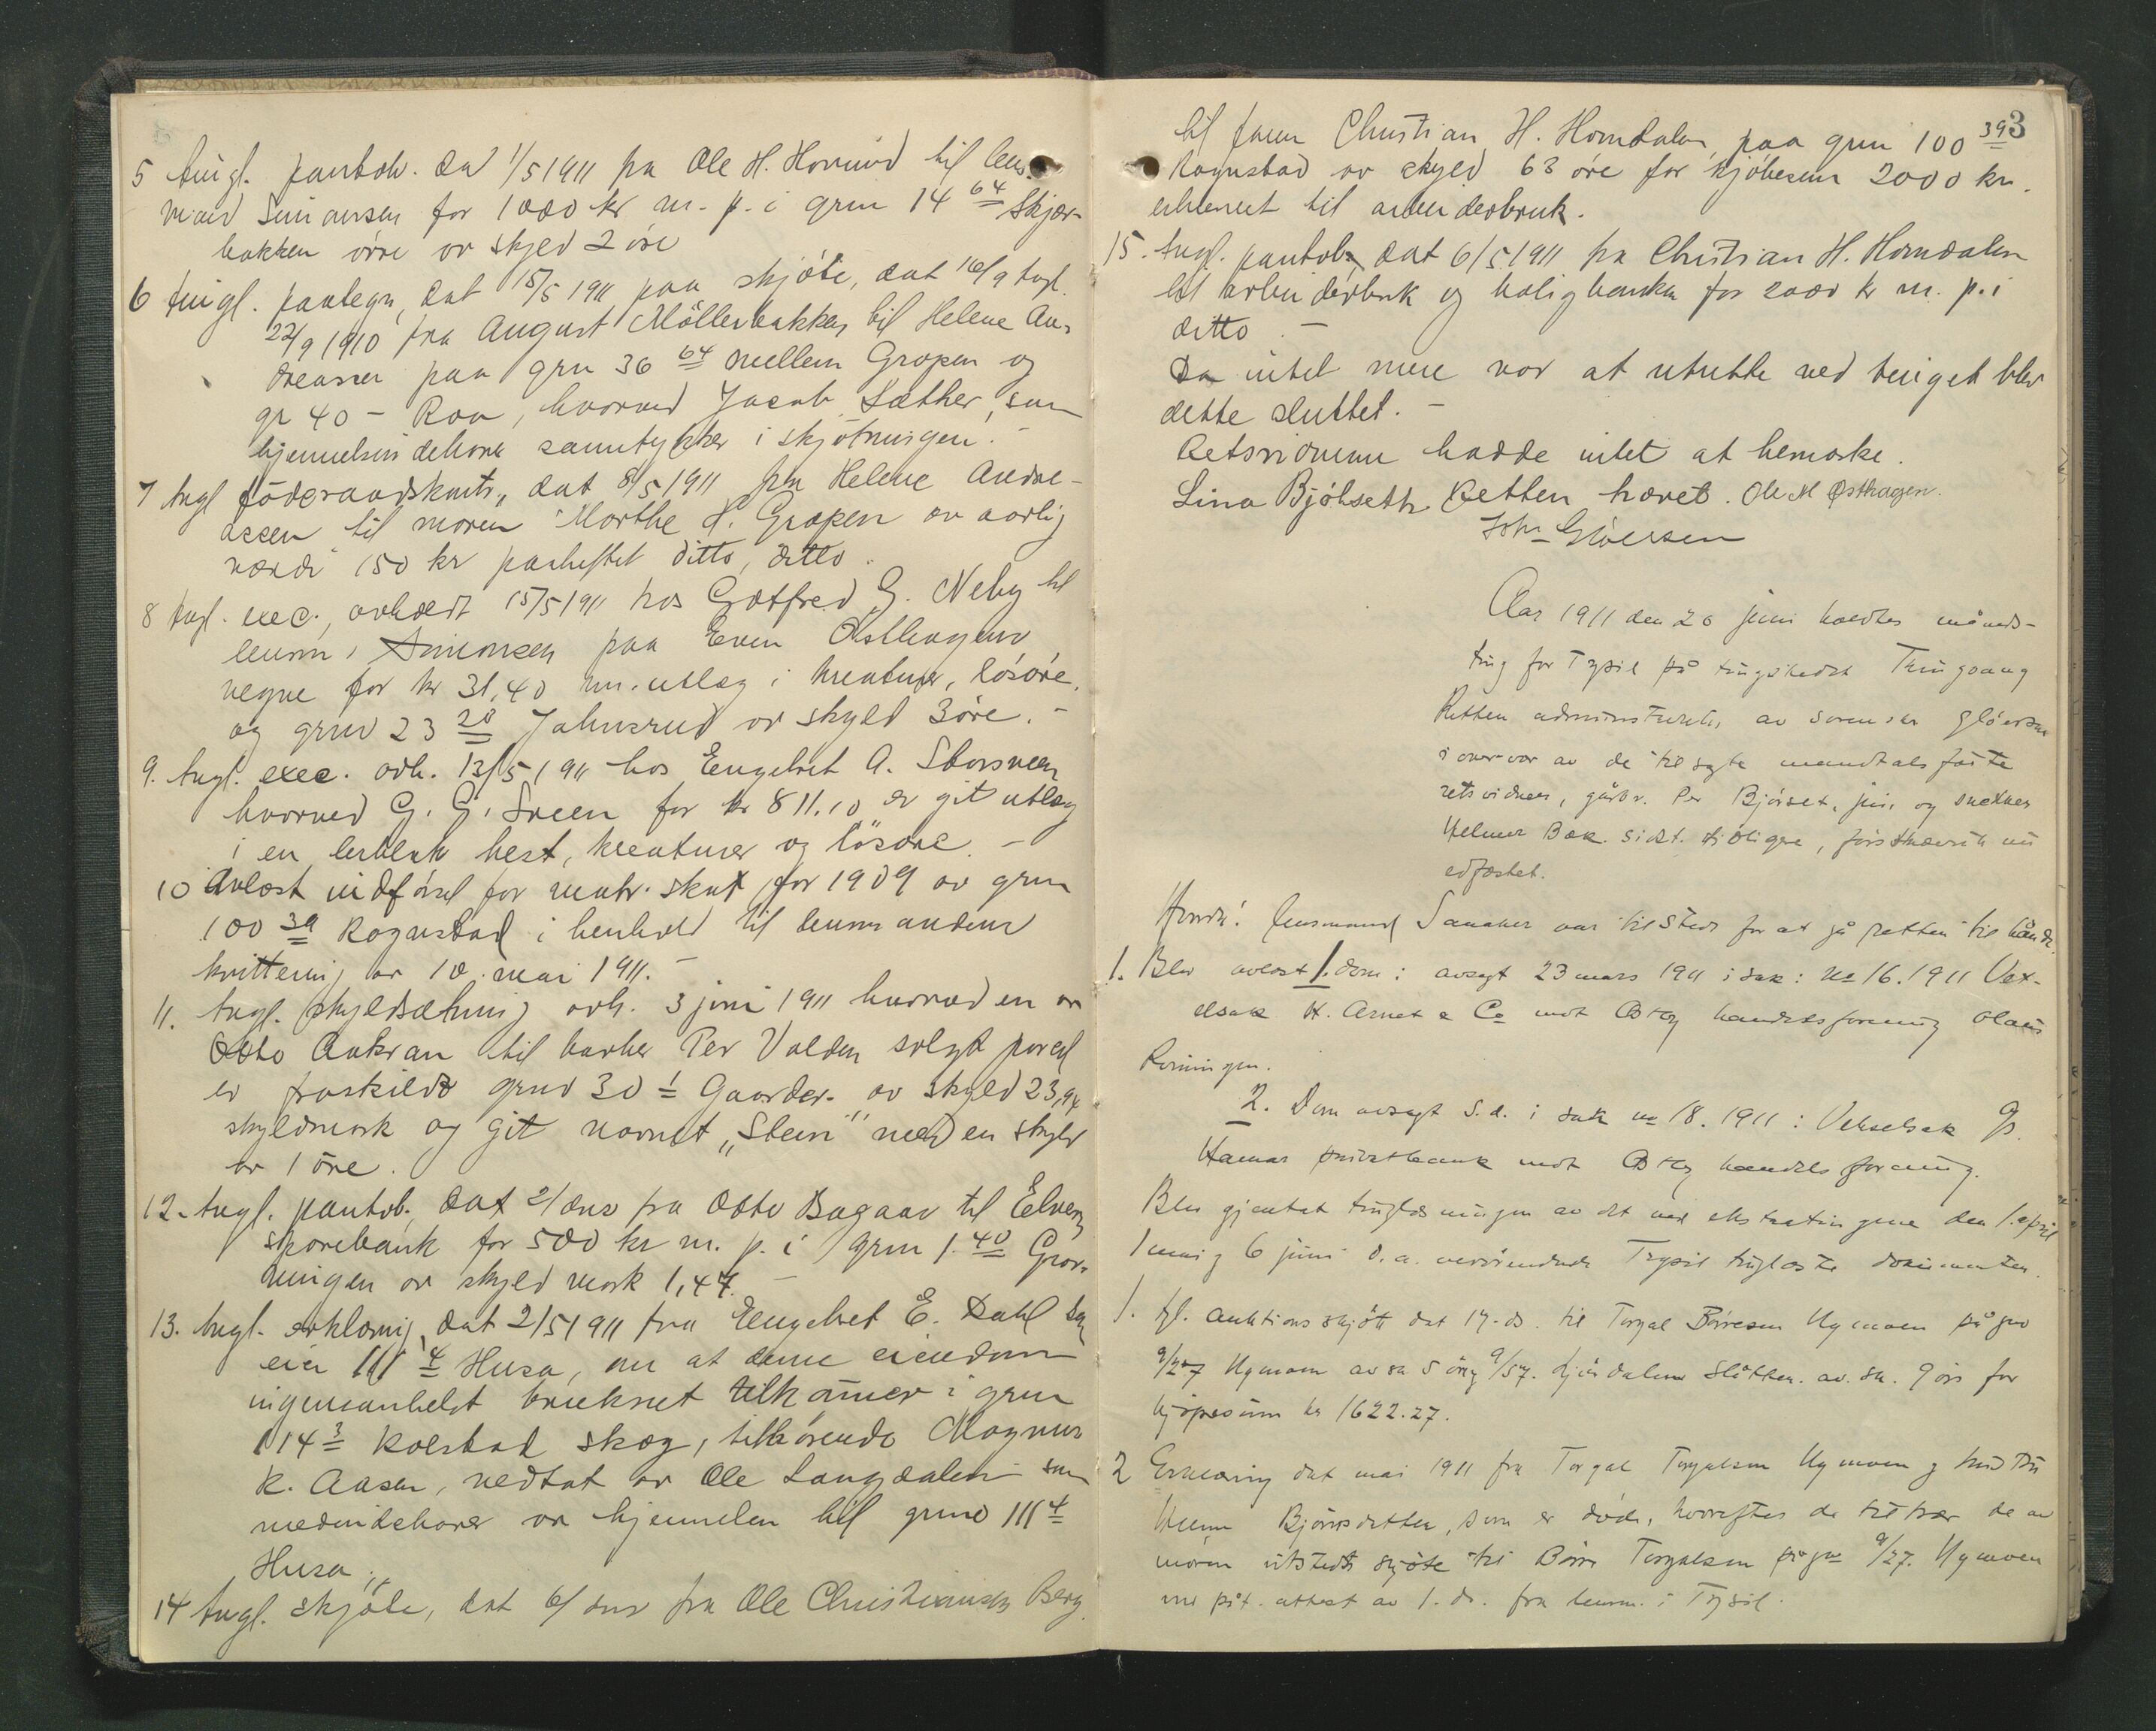 5 tingl. pantob. dat 1/5 1911 fra Ole H. Horund til lens-
mand Simensen for 1000 kr m. p. i grn 14 64 Skjær-
bakken øvre av skyld 2 øre
6 tingl. paategn, dat 15/5 1911 paa skjöte, dat 16/9 tngl.
22/9 1910 fra August Möllerbakken til Helene An-
dreassen paa grn 36 64 mellem Gropen og
gr 40 - Roa, hvorved Jacob Sæther, som
hjemmelsindehaver samtykker i skjötningen. -
7 tngl föderaadskontr., dat 8/5 1911 fra Helene Andre-
assen til moren Marthe H. Gropen av aarlig
værdi 150 kr paaheftet ditto, ditto.
8 tngl. exec., avholdt 15/5 1911 hos Gotfred G. Neby til
lensm. Simensen paa Even Östhagens
vegne for kr 31,40 m. utlæg i kreaturer, lösöre,
og grno 23 20 Jahnsrud av skyld 3 öre. -
9. tngl. exec. avh. 13/5 1911 hos Engebret A. Storsveen
hvorved G. G. Sveen for kr 811.10 er git utlæg
i en lerblak hest, kreaturer og lösöre. -
10 Avlæst indförsel for matr. skat for 1909 av grn
100 39 Rognstad i henhold til lensmandens
kvittering av 10. mai 1911. -
11. tngl. skyldsætning avh. 3 juni 1911 hvorved en av
Otto Aakran til barber Per Volden solgt parcel
er fraskildt grno 30 1 Gaarder av skyld 23,94
skyldmark og git navnet „Steen" med en skyld
av 1 öre.
12. tngl. pantob., dat 2/ dns fra Otto Bagaas til Elverum
sparebank for 500 kr m. p. i grn 1. 40 Grøn-
ningen av skyld mark 1,47. -
13. tngl. erklæring, dat 2/5 1911 fra Engebret E. Dahl som
eier 111 4 Husa, om at denne eiendom
ingensomhelst bruksret tilkommer i grn
114 3 Kolstad skog, tilhörende Magnus
K. Aasen, vedtat av Ole Langdalen som
medindehaver av hjemmelen til grno 111 4
Husa.
14 tngl. skjöte, dat 6/ dns fra Ole Christiansen Berg
3
til Christian H. Horndalen, paa grn 100 39
Rognstad av skyld 63 öre for kjöbesum 2000 kr.
erkleret til arbeiderbruk.
15. tngl. pantob. dat 6/5 1911 fra Christian H. Horndalen
til arbeiderbruk og boligbanken for 2000 kr m. p. i
ditto. -
Da intet mere var at utrette ved tinget blev
dette sluttet. -
Retsvidnerne hadde intet at bemerke.
Lina Bjölseth. Retten hævet. Ole M Østhagen.
Joh. Glöersen
Aar 1911 den 20 juni holdtes måneds-
ting for Trysil på tingstedet Tingvang
Retten administrertes av sorenskr Glöersen
i overvær av de tilsagte mandtalsförte
retsvidner, gårbr. Per Bjørset, jun. og snekker
Helmer Bæk. sidst. tidligere, förstnævnte nu
edfæstet.
Hvorda! lensmand Sanaker var tilstede for at gå retten til hånde.
1. Blev avlæst 1. dom: avsagt 23 mars 1911 i sak: No 16. 1911 Vex-
elsak H. Arnet & Co mot handelsforening Olaus
2. Dom avsagt s. d. i sak no 18. 1911: Vekselsak
Hamar privatbank mot handelsforening.
Blev gjentat tinglæsningen av det ved ekstratingene den 1. april
1 mai og 6 juni d. a. vedrörende Trysil tinglæste dokumenter.
1. tgl. auktionsskjöte dat 17. ds. til Torgal Börresen Nymoen på gno
9/27 Nymoen av sk 5 öre og 9/57. slåtten. av. sk. 9 öre for
kjöpesum kr 1622.27.
2 Erklæring dat mai 1911 fra Torgal Torgalsen Nymoen og hustru
Björnsdatter, som er döde, hvorefter de tiltrær de av
moren utstedte skjöte til Börre Torgalsen på gno 9/27. Nymoen
med påt. attest av 1. ds. fra lensm. i Trysil.